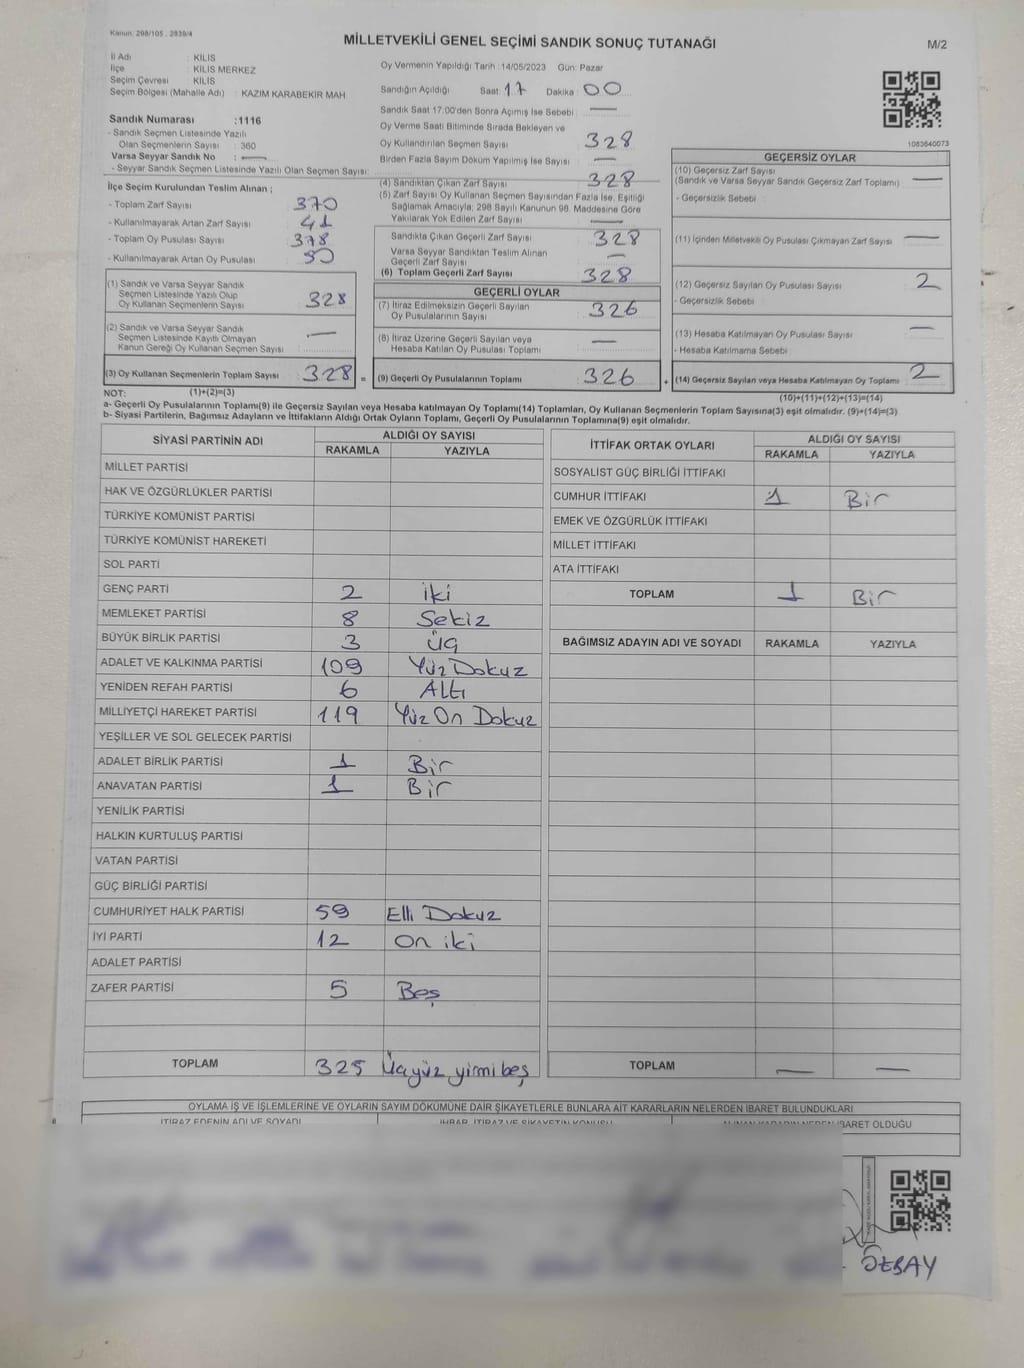 Kanun: 298/105 . 2839/4
MİLLETVEKİLİ GENEL SEÇİMİ SANDIK SONUÇ TUTANAĞI
M/2
İl Adı : KİLİS
İlçe : KİLİS MERKEZ
Seçim Çevresi : KİLİS
Seçim Bölgesi (Mahalle Adı) : KAZIM KARABEKİR MAH.
Sandık Numarası :1116
- Sandık Seçmen Listesinde Yazılı
Olan Seçmenlerin Sayısı : 360
Varsa Seyyar Sandık No : —
- Seyyar Sandık Seçmen Listesinde Yazılı Olan Seçmen Sayısı:
Oy Vermenin Yapıldığı Tarih :14/05/2023 Gün: Pazar
Sandığın Açıldığı Saat: 17 Dakika: 00
Sandık Saat 17:00'den Sonra Açılmış İse Sebebi : —
Oy Verme Saati Bitiminde Sırada Bekleyen ve
Oy Kullandırılan Seçmen Sayısı : 328
Birden Fazla Sayım Döküm Yapılmış İse Sayısı : —
1083640073
İlçe Seçim Kurulundan Teslim Alınan ;
- Toplam Zarf Sayısı : 370
- Kullanılmayarak Artan Zarf Sayısı : 41
- Toplam Oy Pusulası Sayısı : 378
- Kullanılmayarak Artan Oy Pusulası : 50
(1) Sandık ve Varsa Seyyar Sandık
Seçmen Listesinde Yazılı Olup
Oy Kullanan Seçmenlerin Sayısı : 328
(2) Sandık ve Varsa Seyyar Sandık
Seçmen Listesinde Kayıtlı Olmayan
Kanun Gereği Oy Kullanan Seçmen Sayısı : —
(3) Oy Kullanan Seçmenlerin Toplam Sayısı : 328
(4) Sandıktan Çıkan Zarf Sayısı : 328
(5) Zarf Sayısı Oy Kullanan Seçmen Sayısından Fazla İse, Eşitliği
Sağlamak Amacıyla; 298 Sayılı Kanunun 98. Maddesine Göre
Yakılarak Yok Edilen Zarf Sayısı : —
Sandıkta Çıkan Geçerli Zarf Sayısı : 328
Varsa Seyyar Sandıktan Teslim Alınan
Geçerli Zarf Sayısı : —
(6) Toplam Geçerli Zarf Sayısı : 328
GEÇERLİ OYLAR
(7) İtiraz Edilmeksizin Geçerli Sayılan
Oy Pusulalarının Sayısı : 326
(8) İtiraz Üzerine Geçerli Sayılan veya
Hesaba Katılan Oy Pusulası Toplamı : —
= (9) Geçerli Oy Pusulalarının Toplamı : 326
GEÇERSİZ OYLAR
(10) Geçersiz Zarf Sayısı
(Sandık ve Varsa Seyyar Sandık Geçersiz Zarf Toplamı) : —
- Geçersizlik Sebebi :
(11) İçinden Milletvekili Oy Pusulası Çıkmayan Zarf Sayısı : —
(12) Geçersiz Sayılan Oy Pusulası Sayısı : 2
- Geçersizlik Sebebi :
(13) Hesaba Katılmayan Oy Pusulası Sayısı : —
- Hesaba Katılmama Sebebi :
+ (14) Geçersiz Sayılan veya Hesaba Katılmayan Oy Toplamı : 2
NOT: (1)+(2)=(3)
(10)+(11)+(12)+(13)=(14)
a- Geçerli Oy Pusulalarının Toplamı(9) ile Geçersiz Sayılan veya Hesaba katılmayan Oy Toplamı(14) Toplamları, Oy Kullanan Seçmenlerin Toplam Sayısına(3) eşit olmalıdır. (9)+(14)=(3)
b- Siyasi Partilerin, Bağımsız Adayların ve İttifakların Aldığı Ortak Oyların Toplamı, Geçerli Oy Pusulalarının Toplamına(9) eşit olmalıdır.
SİYASİ PARTİNİN ADI ALDIĞI OY SAYISI
RAKAMLA YAZIYLA
MİLLET PARTİSİ
HAK VE ÖZGÜRLÜKLER PARTİSİ
TÜRKİYE KOMÜNİST PARTİSİ
TÜRKİYE KOMÜNİST HAREKETİ
SOL PARTİ
GENÇ PARTİ 2 iki
MEMLEKET PARTİSİ 8 Sekiz
BÜYÜK BİRLİK PARTİSİ 3 üç
ADALET VE KALKINMA PARTİSİ 109 Yüz Dokuz
YENİDEN REFAH PARTİSİ 6 Altı
MİLLİYETÇİ HAREKET PARTİSİ 119 Yüz On Dokuz
YEŞİLLER VE SOL GELECEK PARTİSİ
ADALET BİRLİK PARTİSİ 1 Bir
ANAVATAN PARTİSİ 1 Bir
YENİLİK PARTİSİ
HALKIN KURTULUŞ PARTİSİ
VATAN PARTİSİ
GÜÇ BİRLİĞİ PARTİSİ
CUMHURİYET HALK PARTİSİ 59 Elli Dokuz
İYİ PARTİ 12 on iki
ADALET PARTİSİ
ZAFER PARTİSİ 5 Beş
TOPLAM 325 Üçyüz yirmi beş
İTTİFAK ORTAK OYLARI ALDIĞI OY SAYISI
RAKAMLA YAZIYLA
SOSYALİST GÜÇ BİRLİĞİ İTTİFAKI
CUMHUR İTTİFAKI 1 Bir
EMEK VE ÖZGÜRLÜK İTTİFAKI
MİLLET İTTİFAKI
ATA İTTİFAKI
TOPLAM 1 Bir
BAĞIMSIZ ADAYIN ADI VE SOYADI RAKAMLA YAZIYLA
TOPLAM — —
OYLAMA İŞ VE İŞLEMLERİNE VE OYLARIN SAYIM DÖKÜMÜNE DAİR ŞİKAYETLERLE BUNLARA AİT KARARLARIN NELERDEN İBARET BULUNDUKLARI
İTİRAZ EDENİN ADI VE SOYADI İHBAR, İTİRAZ VE ŞİKAYETİN KONUSU ALINAN KARARIN NEDEN İBARET OLDUĞU
ÖZBAY